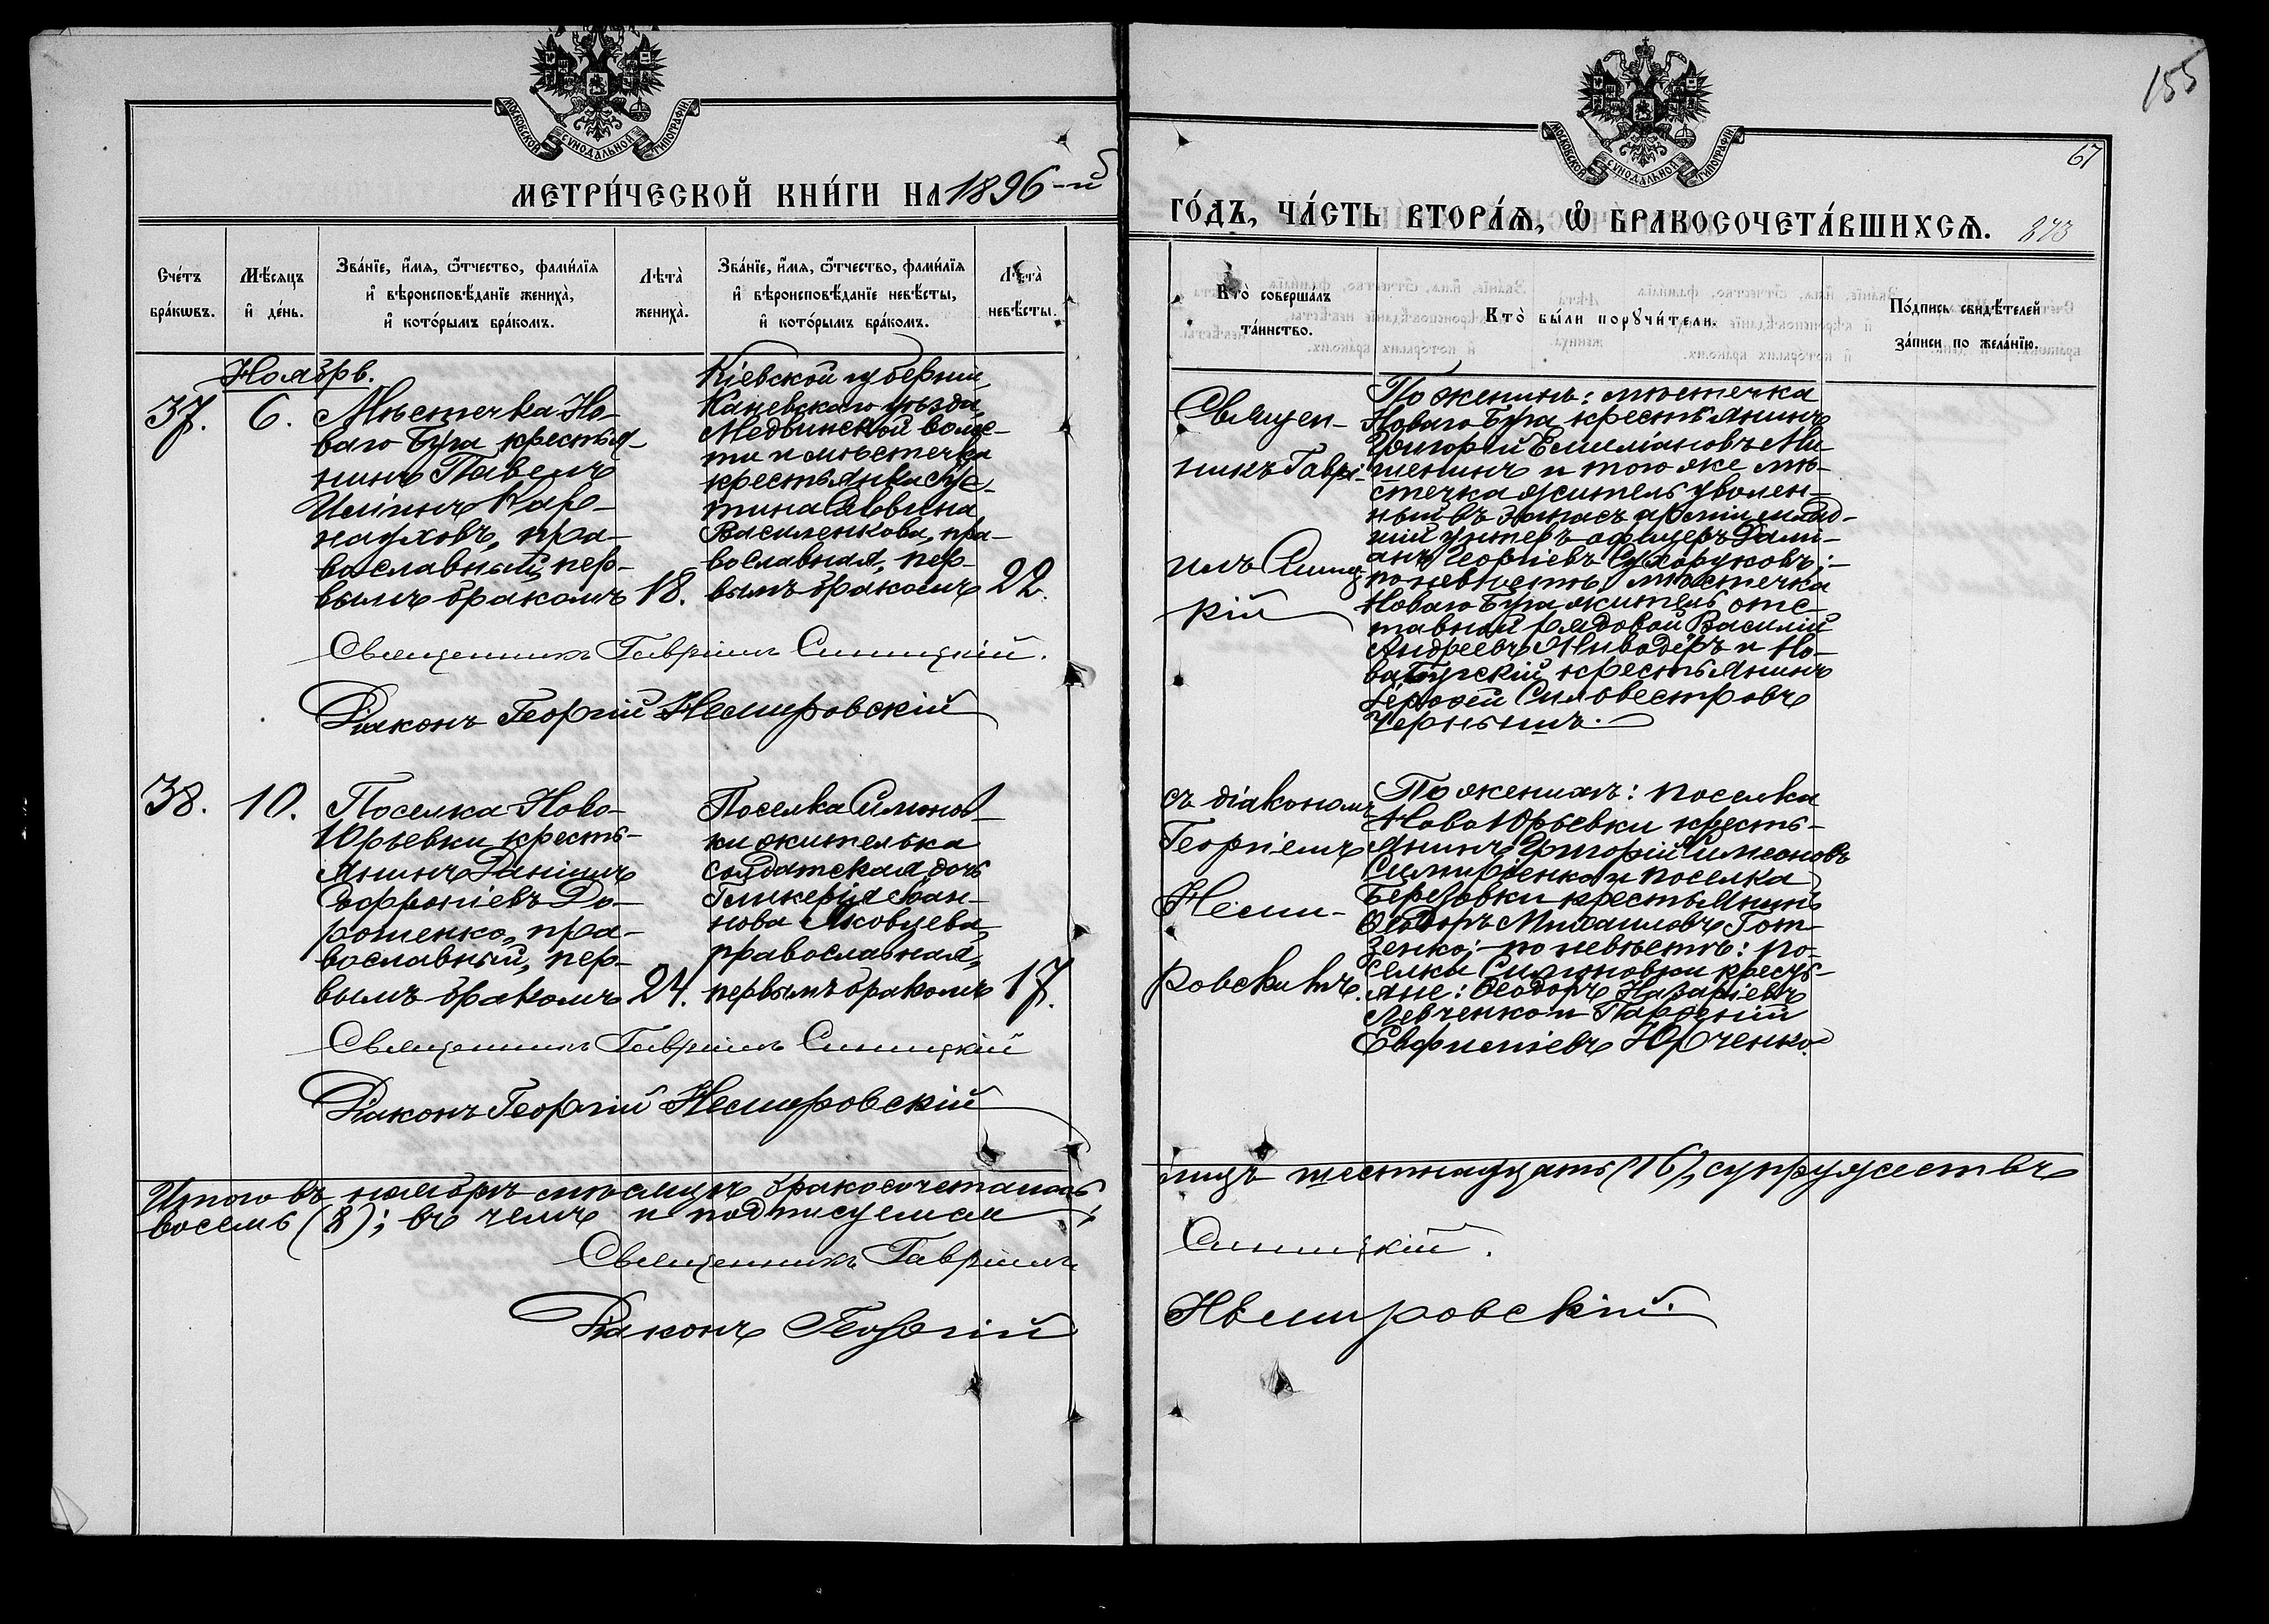 МЕТРИ́ЧЕСКОЙ КНИ́ГИ НА 1896-й
ГО́ДЪ, ЧА́СТЬ ВТОРА́Ѧ, Ѡ БРАКОСОЧЕТА́ВШИХСѦ.
155
67
273
МОСКОВСКОЙ СѴНОДАЛЬНОЙ ТИПОГРАФІИ
МОСКОВСКОЙ СѴНОДАЛЬНОЙ ТИПОГРАФІИ
Сче́тъ бра́кѡвъ.
Мѣ́сяцъ и҆ де́нь.
Зва́нїе, и҆́мя, ѻ҆́тчество, фами́лїя
и҆ вѣроисповѣ́данїе жениха̀,
и҆ кото́рымъ бра́комъ.
Лѣта̀ жениха̀.
Зва́нїе, и҆́мя, ѻ҆́тчество, фами́лїя
и҆ вѣроисповѣ́данїе невѣ́сты,
и҆ кото́рымъ бра́комъ.
Лѣта̀ невѣ́сты.
Кто̀ соверша́лъ
та́инство.
Кто̀ бы́ли порꙋчи́тели.
По́дпись свидѣ́телей
за́писи по жела́нїю.
Ноябрь.
37.
6.
Мѣстечка Но-
ваго Буга крестья-
нинъ Павелъ
Иліинъ Кар-
науховъ, пра-
вославный, пер-
вымъ бракомъ
18.
Кіевской губерніи,
Каневскаго уѣзда,
Медвинской волос-
ти и мѣстечка
крестьянка Іус-
тина Саввина
Василенкова, пра-
вославная, пер-
вымъ бракомъ
22.
Священ-
никъ Гаврі-
илъ Синиц-
кій
По женихѣ: мѣстечка
Новаго Буга крестьянинъ
Григорій Емиліановъ Ми-
шенинъ и того же мѣ-
стечка житель уволен-
ный въ запасъ арміи млад-
шій унтеръ-офицеръ Дамі-
анъ Георгіевъ Сухоруковъ;-
по невѣстѣ: мѣстечка
Новаго Буга житель отс-
тавной рядовой Василій
Андреевъ Живодёръ и Но-
вобугскій крестьянинъ
Іероѳей Силовестровъ
Чернышъ.
Священникъ Гавріилъ Синицкій.
Діаконъ Георгій Немировскій
38.
10.
Поселка Ново-
Юрьевки кресть-
янинъ Даніилъ
Софроніевъ До-
рошенко, пра-
вославный, пер-
вымъ бракомъ
24.
Поселка Симонов-
ки жителька
солдатская дочь
Гликерія Іоан-
нова Яковцева,
православная,
первымъ бракомъ
17.
съ діакономъ
Георгіемъ
Неми-
ровскимъ.
По женихѣ: поселка
Ново Юрьевки кресть-
янинъ Григорій Симеоновъ
Симиренко и поселка
Березовки крестьянинъ
Ѳеодоръ Михаиловъ Гот-
зенко;- по невѣстѣ: по-
селка Симоновки кресть-
яне: Ѳеодоръ Назаріевъ
Левченко и Парѳеній
Евфиміевъ Юрченко.
Священникъ Гавріилъ Синицкій
Діаконъ Георгій Немировскій
Итого въ ноябрѣ мѣсяцѣ бракосочеталось лицъ шестнадцать (16), супружествъ
восемь (8); въ чемъ и подписуемся:
Священникъ Гавріилъ Синицкій.
Діаконъ Георгій Немировскій.